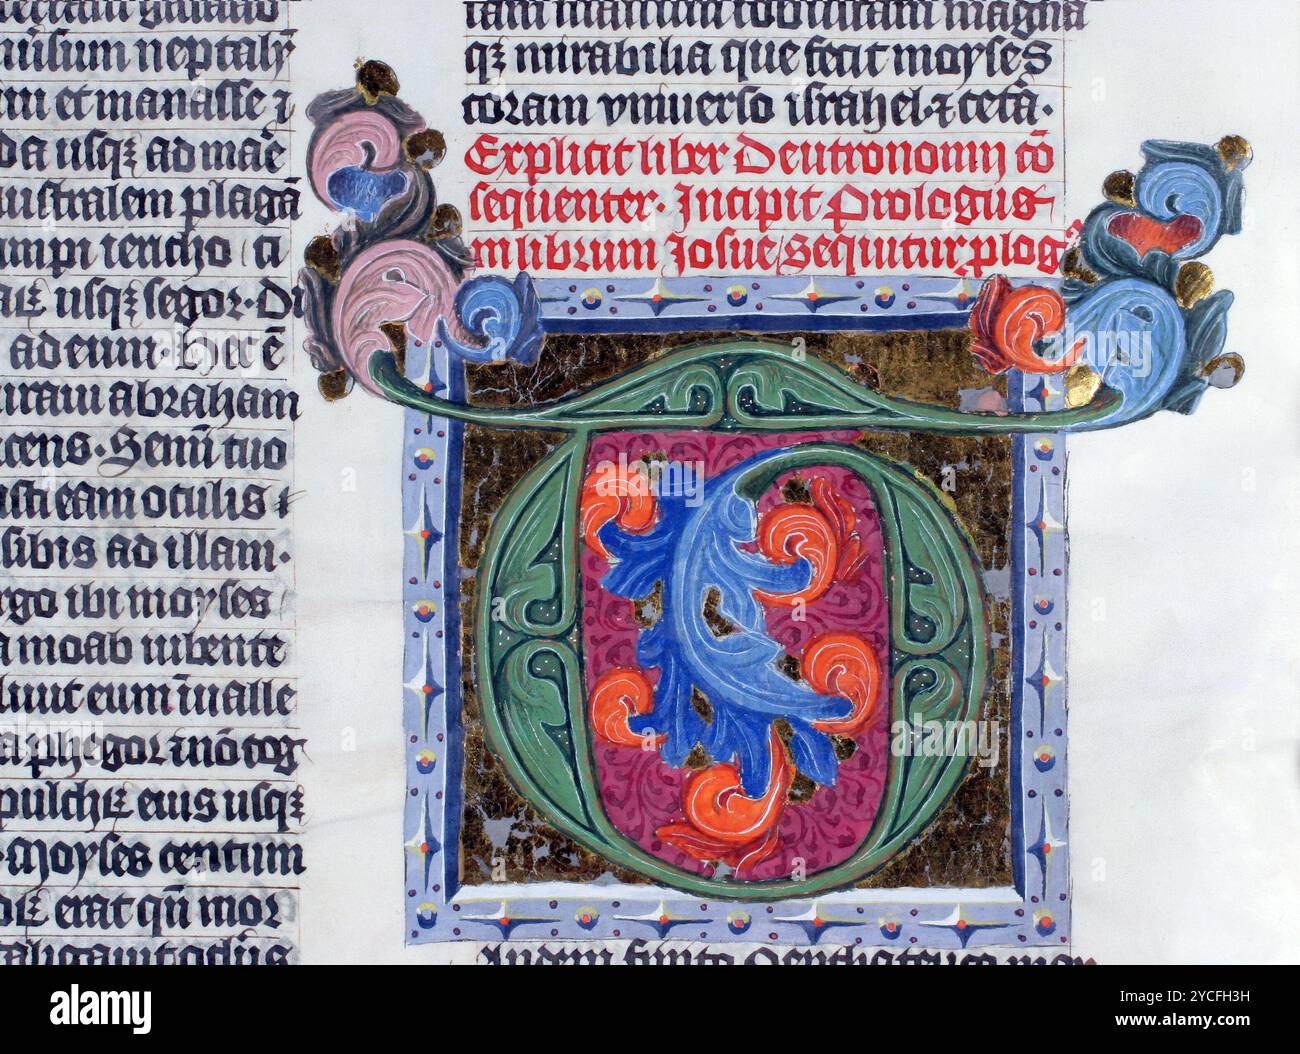 nīsum neptalȳ
im et manasse ⁊
da usqꝫ ad maē
ustralem plagā
ampi iericho ci
usqꝫ segor · Di
ad eum · Hec ē
uraui abraham
icens · Semī tuo
isti eam oculis ⁊
sibis ad illam ·
rgo ibi moyses
a moab iubente
liuit eum ī ualle
a phegor ⁊ nō cog
pulchꝝ eius usqꝫ
· Moyses centum
erat qn̄ mor
caligauit oclūs
iam manum robustam magna
qꝫ mirabilia que fecit moyses
coram vniuerso israhel · ⁊ ceta ·
Explicit liber Deutronomij cō
sequenter · Incipit Prologus
in librum Josue / Sequitur plog
Andem finito Penthateuco moy
alamy
Image ID: 2YCFH3H
www.alamy.com